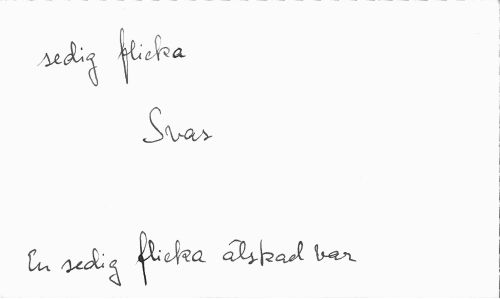 sedig flicka
Svas
En sedig flicka älskad var